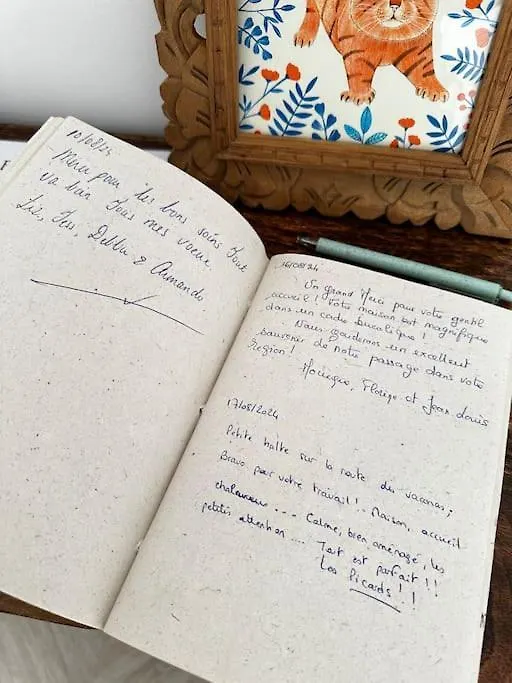 10/08/24
Merci pour les bons soins Tout
va bien Tous mes voeux
Isa, Tess, Debbie & Armando
16/08/24
Un grand Merci pour votre gentil
accueil ! Votre maison est magnifique
dans un cadre bucolique !
Nous garderons un excellent
souvenir de notre passage dans votre
Région !
Monique, Florine et Jean Louis
17/08/2024
Petite halte sur la route des vacances,
Bravo pour votre travail ! Maison, accueil
chaleureux ... Calme, bien aménagé, les
petites attention ... Tout est parfait !!
Les Picards !!